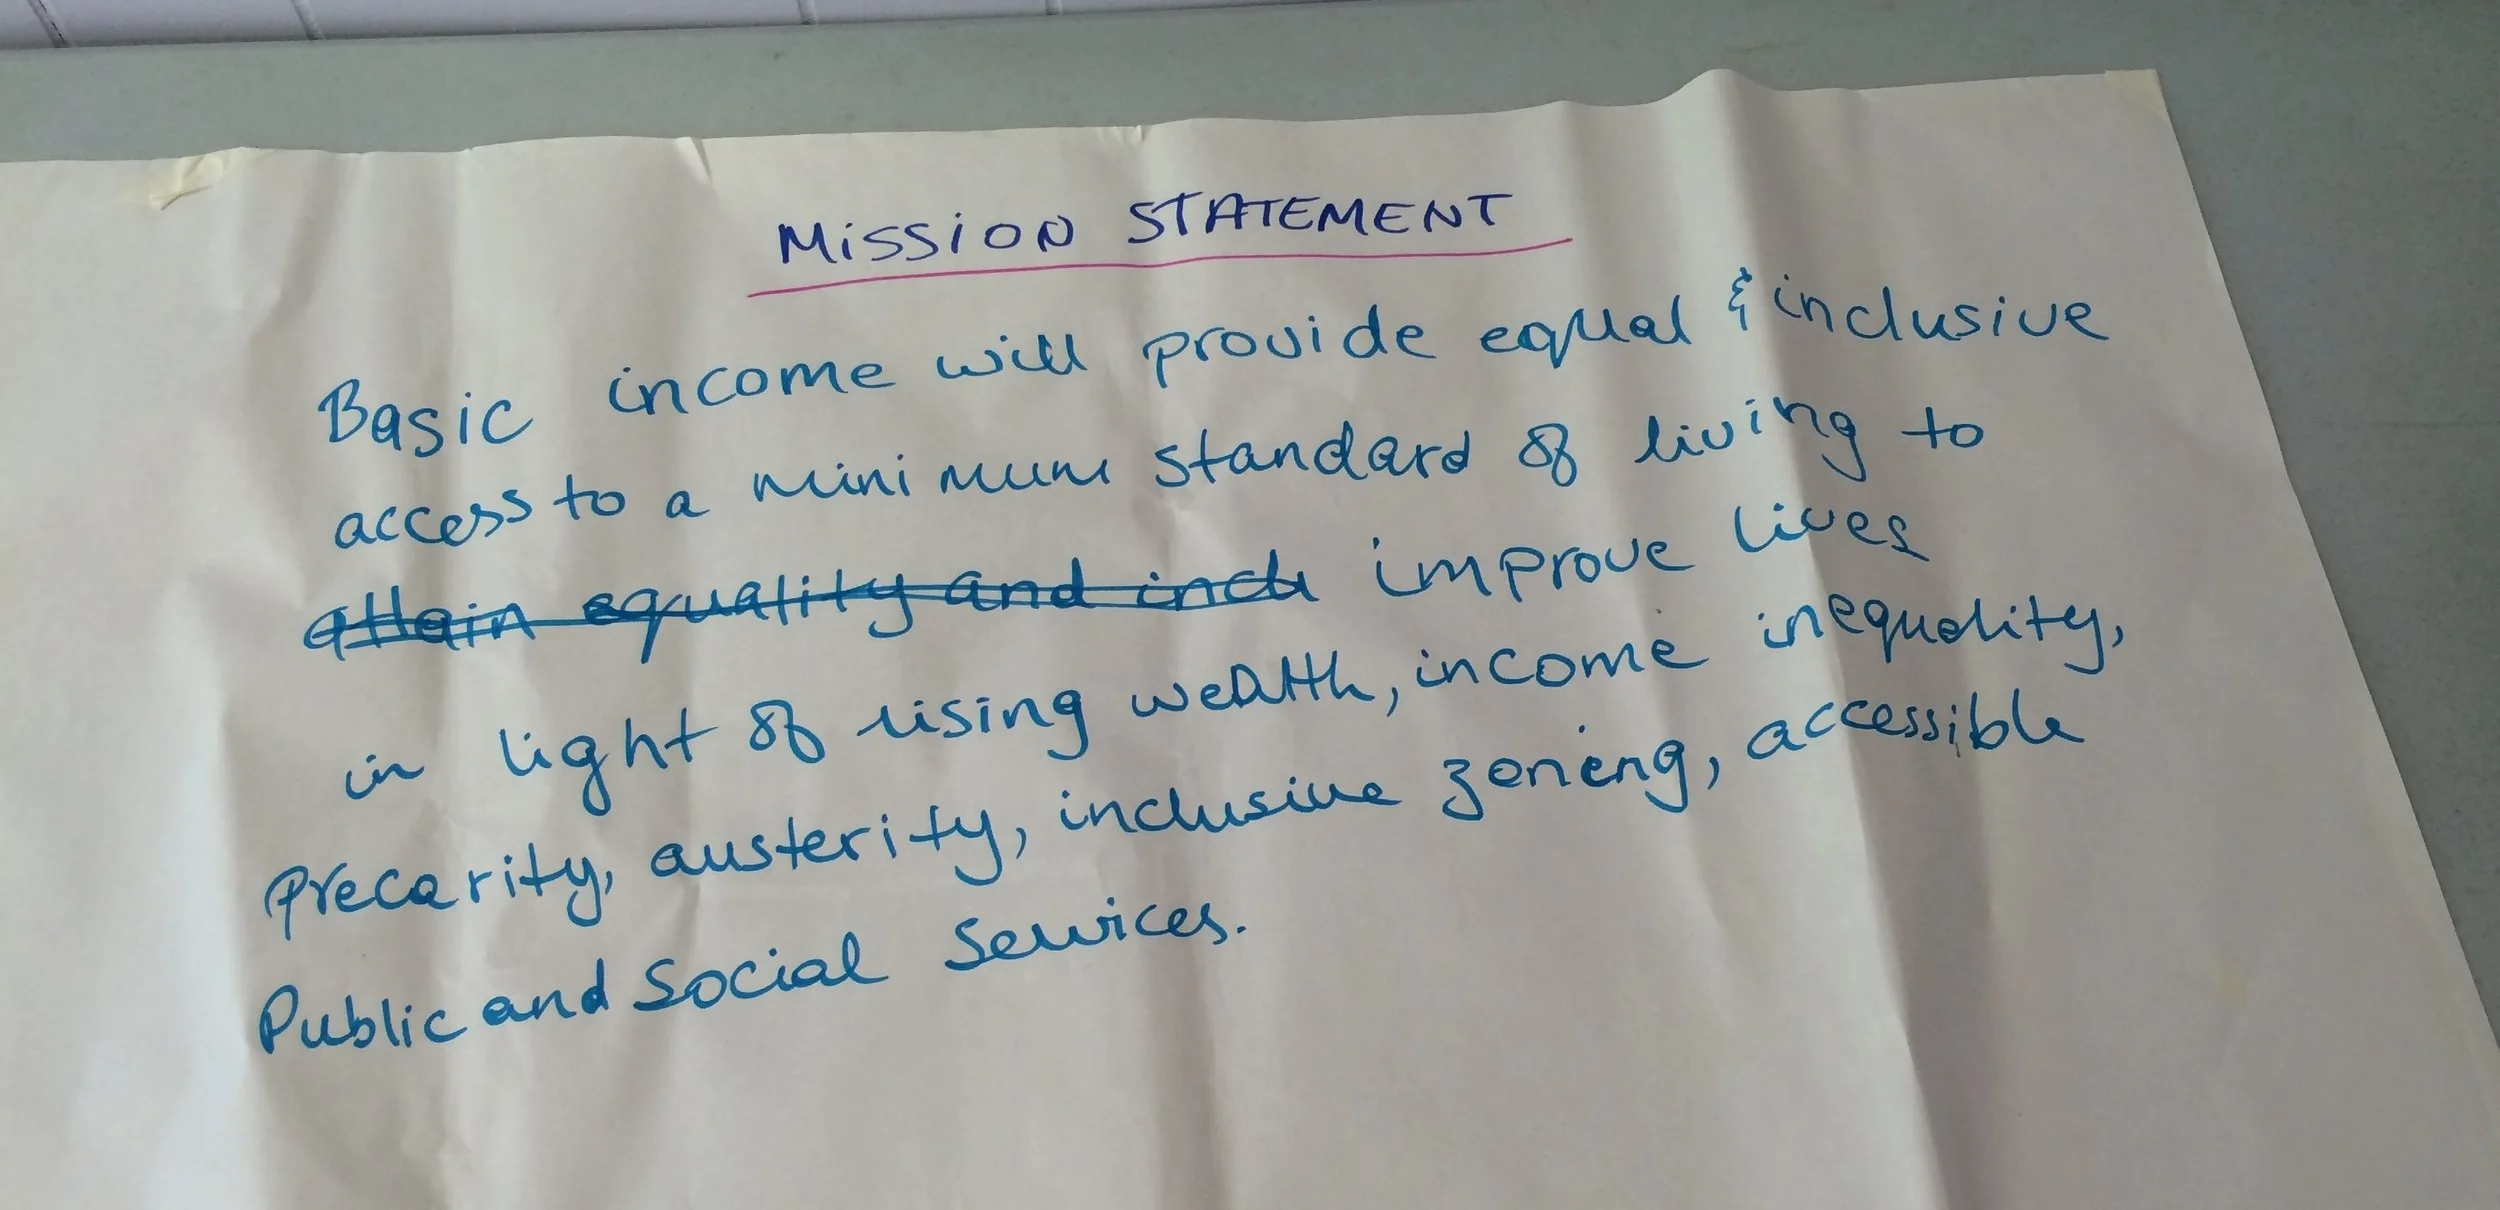 MISSION STATEMENT
Basic income will provide equal & inclusive
access to a minimum standard of living to
attain equality and inclu improve lives
in light of rising wealth, income inequality,
Precarity, austerity, inclusive zoning, accessible
Public and Social Services.